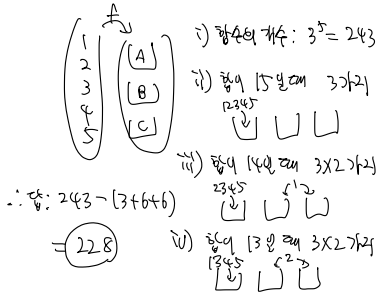 f
1
2
3
4
5
A
B
C
i) 함수의 개수: 3⁵ = 243
ii) 합이 15일 때 3가지
12345
iii) 합이 14일 때 3×2가지
2345
1
iv) 합이 13일 때 3×2가지
1345
2
∴ 답: 243 - (3+6+6)
= 228